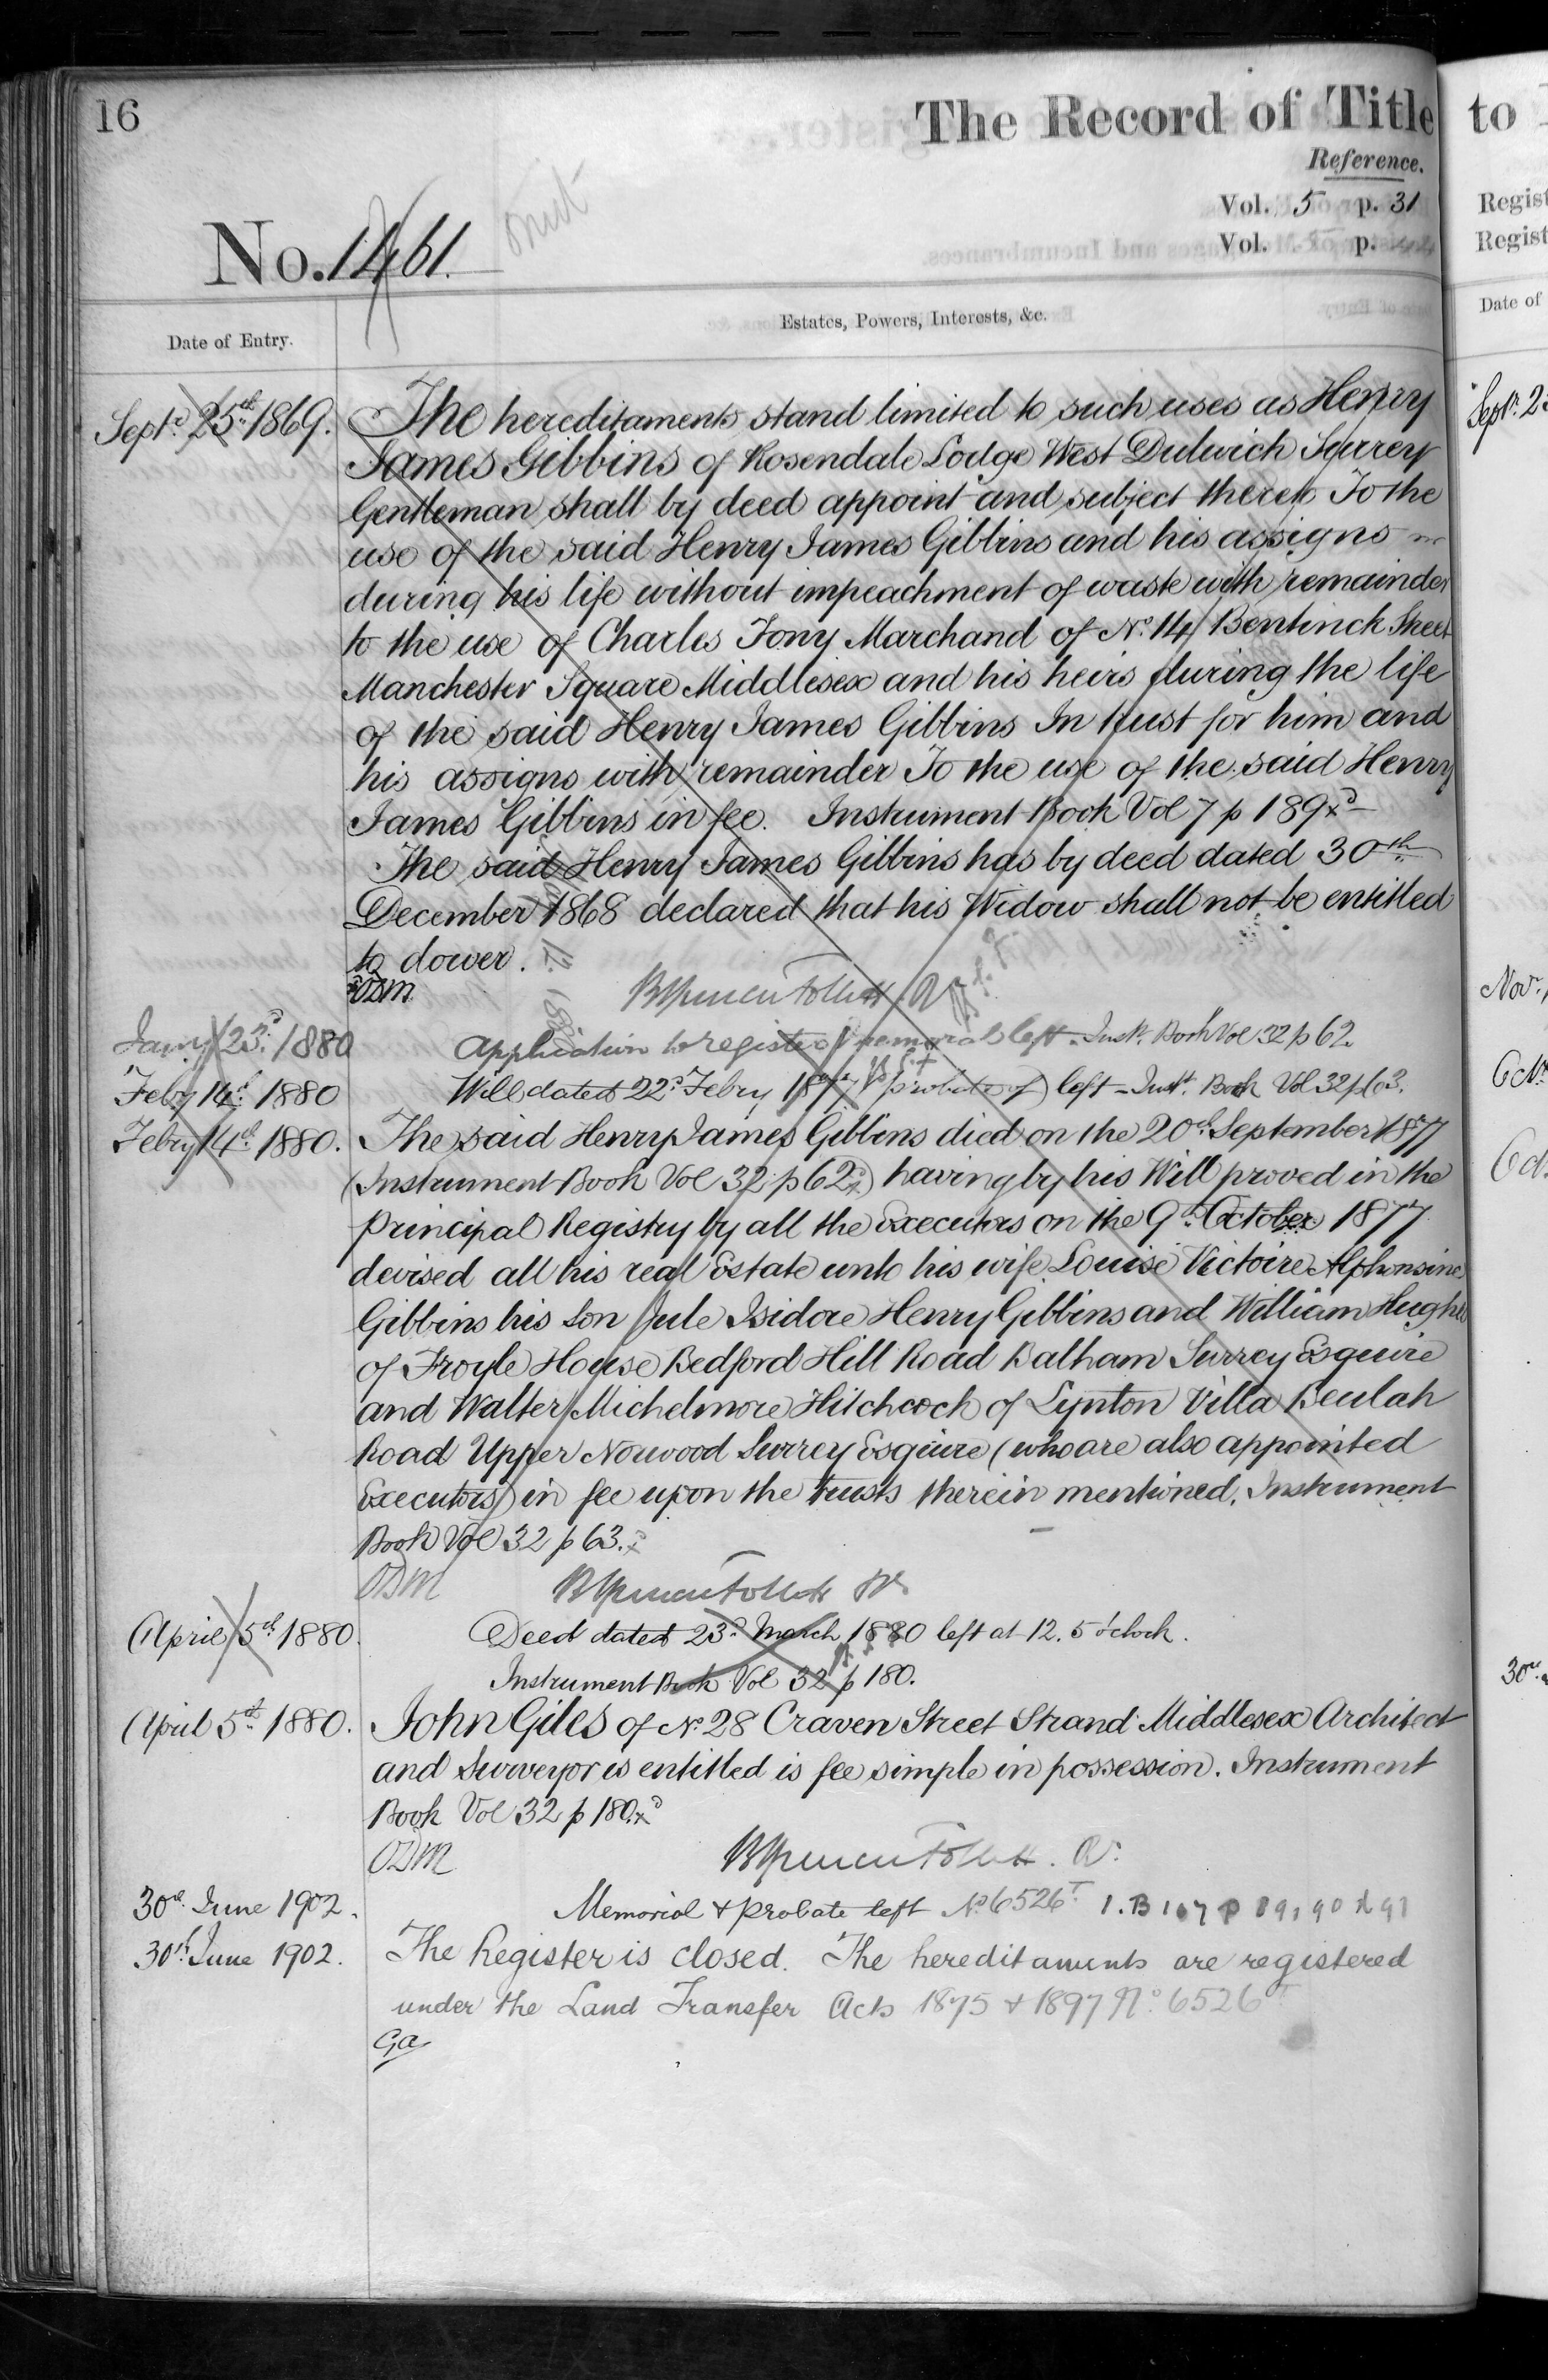 16
The Record of Title
to
Reference.
Vol. 5 p. 31
Vol. p.
No. 1461.
Regist
Regist
Date of Entry.
Estates, Powers, Interests, &c.
Date of
Septr. 25th 1869.
The hereditaments stand limited to such uses as Henry
James Gibbins of Rosendale Lodge West Dulwich Surrey
Gentleman shall by deed appoint and subject thereto To the
use of the said Henry James Gibbins and his assigns
during his life without impeachment of waste with remainder
to the use of Charles Tony Marchand of No. 14 Bentinck Street
Manchester Square Middlesex and his heirs during the life
of the said Henry James Gibbins In trust for him and
his assigns with remainder To the use of the said Henry
James Gibbins in fee. Instrument Book Vol 7 p 189
The said Henry James Gibbins has by deed dated 30th
December 1868 declared that his Widow shall not be entitled
to dower.
ODM
Jany 23rd 1880
Application to register memorial left. Inst. Book Vol 32 p 62.
Feby 14th 1880
Will dated 22nd Febry (probate of) left - Inst. Book Vol 32 p 63.
Febry 14th 1880.
The said Henry James Gibbins died on the 20th September 1877
(Instrument Book Vol 32 p 62) having by his Will proved in the
Principal Registry by all the Executors on the 9th October 1877
devised all his real Estate unto his wife Louise Victoire Alphonsine
Gibbins his son Jule Isidore Henry Gibbins and William Hughes
of Froyle House Bedford Hill Road Balham Surrey Esquire
and Walter Michelmore Hitchcock of Lynton Villa Beulah
Road Upper Norwood Surrey Esquire (who are also appointed
Executors) in fee upon the trusts therein mentioned. Instrument
Book Vol 32 p 63.
ODM
April 5th 1880.
Deed dated 23rd March 1880 left at 12. 5 o'clock.
Instrument Book Vol 32 p 180.
April 5th 1880.
John Giles of No. 28 Craven Street Strand Middlesex Architect
and Surveyor is entitled is fee simple in possession. Instrument
Book Vol 32 p 180.
ODM
30th June 1902.
Memorial & probate left No. 6526T I.B 107 p 89, 90 & 91
30th June 1902.
The Register is closed. The hereditaments are registered
under the Land Transfer Acts 1875 & 1897 No. 6526
Ga